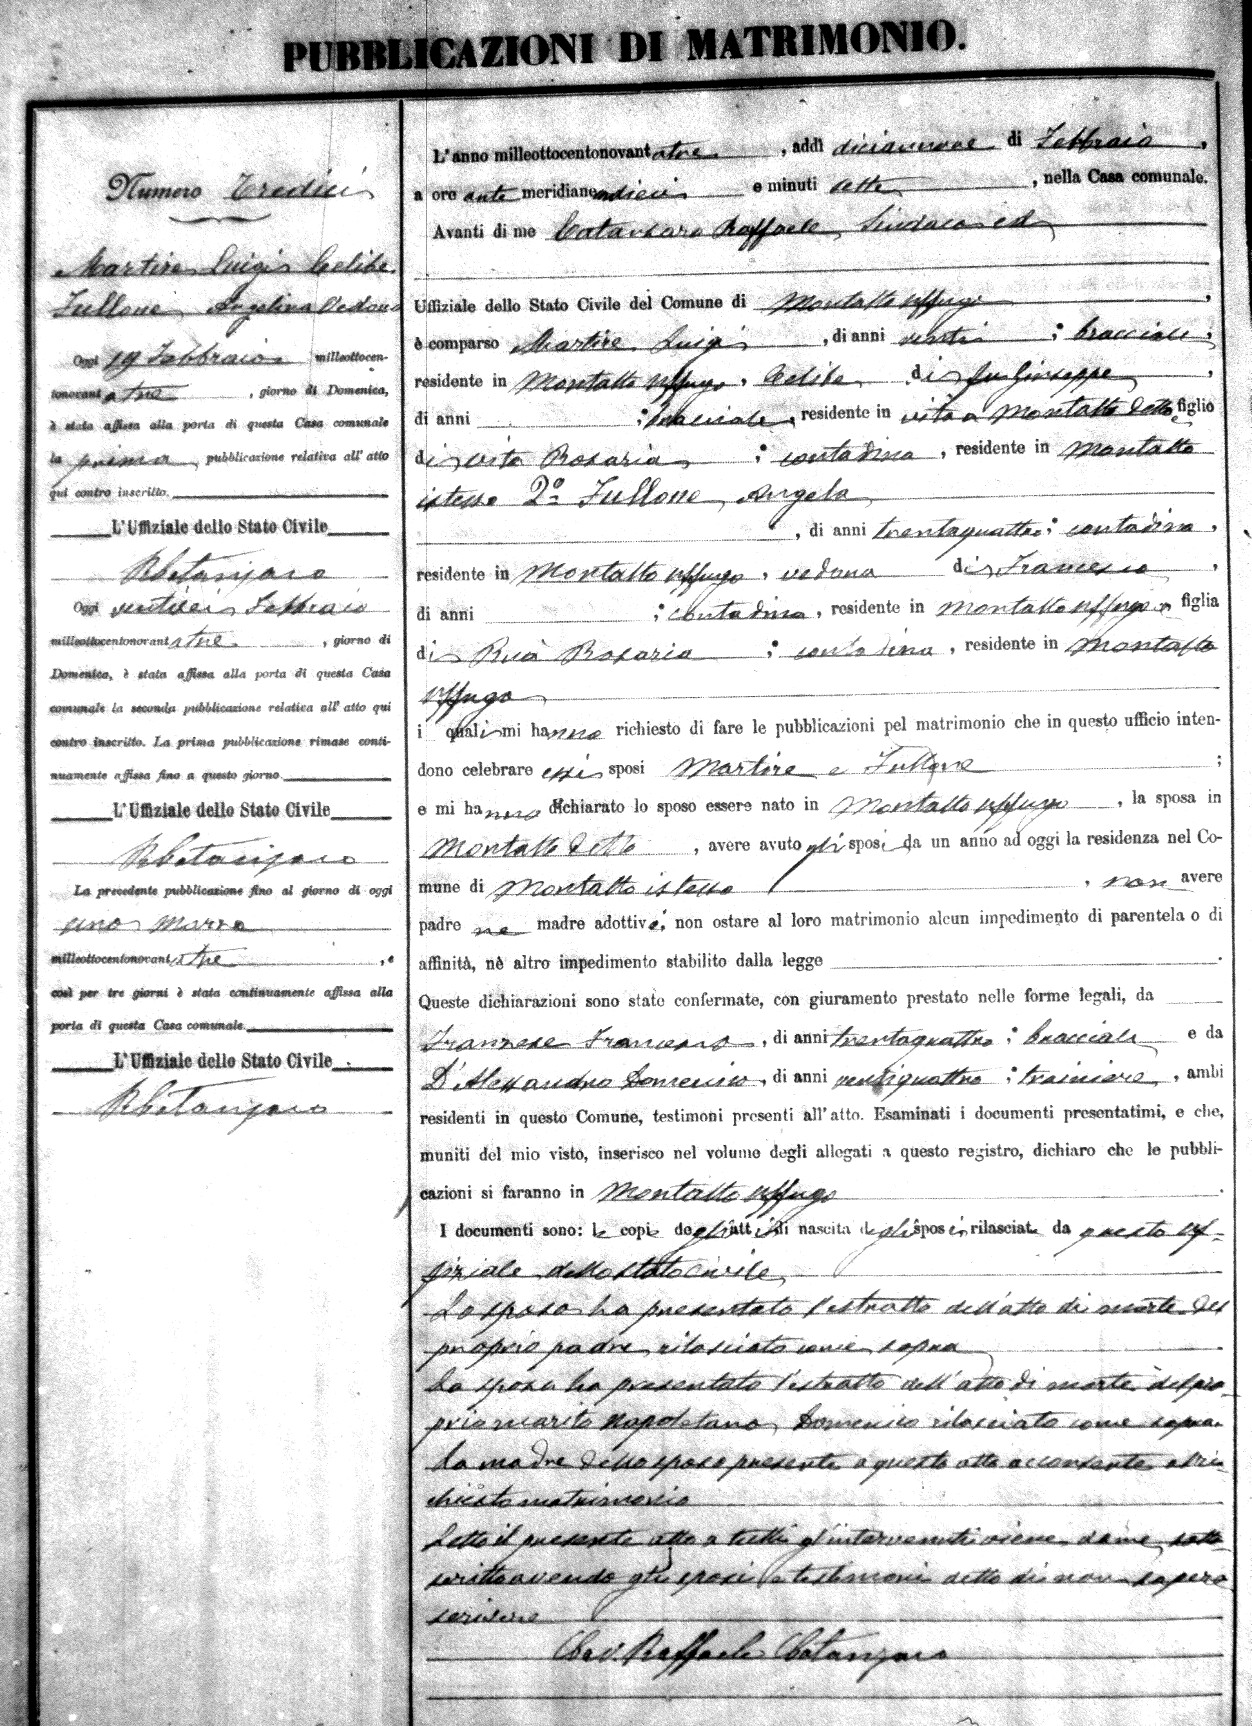 PUBBLICAZIONI DI MATRIMONIO.
Numero Tredici
Martire Luigi Celibe
Fullone Angelina Vedova
Oggi 19 Febbraio milleottocen-
tonovantatre, giorno di Domenica,
è stata affissa alla porta di questa Casa comunale
la prima pubblicazione relativa all'atto
qui contro inscritto.
L'Uffiziale dello Stato Civile
RCatanzaro
Oggi ventisei Febbraio
milleottocentonovantatre, giorno di
Domenica, è stata affissa alla porta di questa Casa
comunale la seconda pubblicazione relativa all'atto qui
contro inscritto. La prima pubblicazione rimase conti-
nuamente affissa fino a questo giorno.
L'Uffiziale dello Stato Civile
RCatanzaro
La precedente pubblicazione fino al giorno di oggi
uno Marzo
milleottocentonovantatre, e
così per tre giorni è stata continuamente affissa alla
porta di questa Casa comunale.
L'Uffiziale dello Stato Civile
RCatanzaro
L'anno milleottocentonovantatre, addì diciannove di Febbraio,
a ore ante meridiane undieci e minuti sette, nella Casa comunale.
Avanti di me Catanzaro Raffaele Sindaco ed
Uffiziale dello Stato Civile del Comune di Montalto Uffugo,
è comparso Martire Luigi, di anni venti; bracciale,
residente in Montalto Uffugo, Celibe di fu Giuseppe,
di anni ; bracciale, residente in vita a Montalto detto figlio
di Vita Rosaria; contadina, residente in Montalto
istesso 2º Fullone Angela
, di anni trentaquattro; contadina,
residente in Montalto Uffugo, vedova di Francesco,
di anni ; contadino, residente in Montalto Uffugo figlia
di Ruà Rosaria; contadina, residente in Montalto
Uffugo
i quali mi hanno richiesto di fare le pubblicazioni pel matrimonio che in questo ufficio inten-
dono celebrare essi sposi Martire e Fullone;
e mi hanno dichiarato lo sposo essere nato in Montalto Uffugo, la sposa in
Montalto detto, avere avuto gli sposi da un anno ad oggi la residenza nel Co-
mune di Montalto istesso, non avere
padre ne madre adottivi, non ostare al loro matrimonio alcun impedimento di parentela o di
affinità, nè altro impedimento stabilito dalla legge.
Queste dichiarazioni sono state confermate, con giuramento prestato nelle forme legali, da
Franzese Francesco, di anni trentaquattro; bracciale e da
D'Alessandro Domenico, di anni ventiquattro; trainiere, ambi
residenti in questo Comune, testimoni presenti all'atto. Esaminati i documenti presentatimi, e che,
muniti del mio visto, inserisco nel volume degli allegati a questo registro, dichiaro che le pubbli-
cazioni si faranno in Montalto Uffugo.
I documenti sono: le copie degli atti di nascita degli sposi rilasciate da questo Uf-
fiziale dello Stato Civile
Lo sposo ha presentato l'estratto dell'atto di morte del
proprio padre rilasciato come sopra
La sposa ha presentato l'estratto dell'atto di morte del pro-
prio marito Napoletano Domenico rilasciato come sopra.
La madre dello sposo presente a questo atto acconsente al ri-
chiesto matrimonio
Letto il presente atto a tutti gl'intervenuti viene da me sotto-
scritto avendo gli sposi e testimoni detto di non sapere
scrivere
Cav. Raffaele Catanzaro